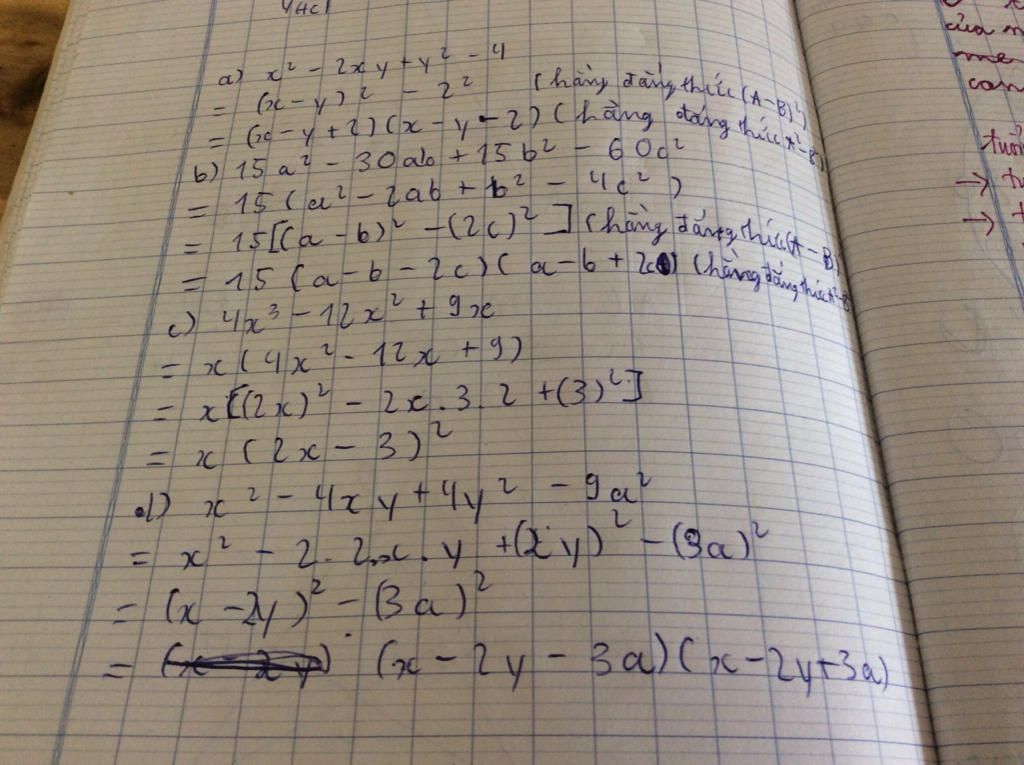 a) x² - 2xy + y² - 4
= (x - y)² - 2² (hằng đẳng thức (A - B)²)
= (x - y + 2)(x - y - 2) (hằng đẳng thức A² - B²)
b) 15a² - 30ab + 15b² - 60c²
= 15(a² - 2ab + b² - 4c²)
= 15[(a - b)² - (2c)²] (hằng đẳng thức (A - B)
= 15(a - b - 2c)(a - b + 2c) (hằng đẳng thức A² - B
c) 4x³ - 12x² + 9x
= x(4x² - 12x + 9)
= x[(2x)² - 2x.3.2 + (3)²]
= x(2x - 3)²
d) x² - 4xy + 4y² - 9a²
= x² - 2.2.x.y + (2y)² - (3a)²
= (x - 2y)² - (3a)²
= (x - 2y - 3a)(x - 2y + 3a)
của
me
con